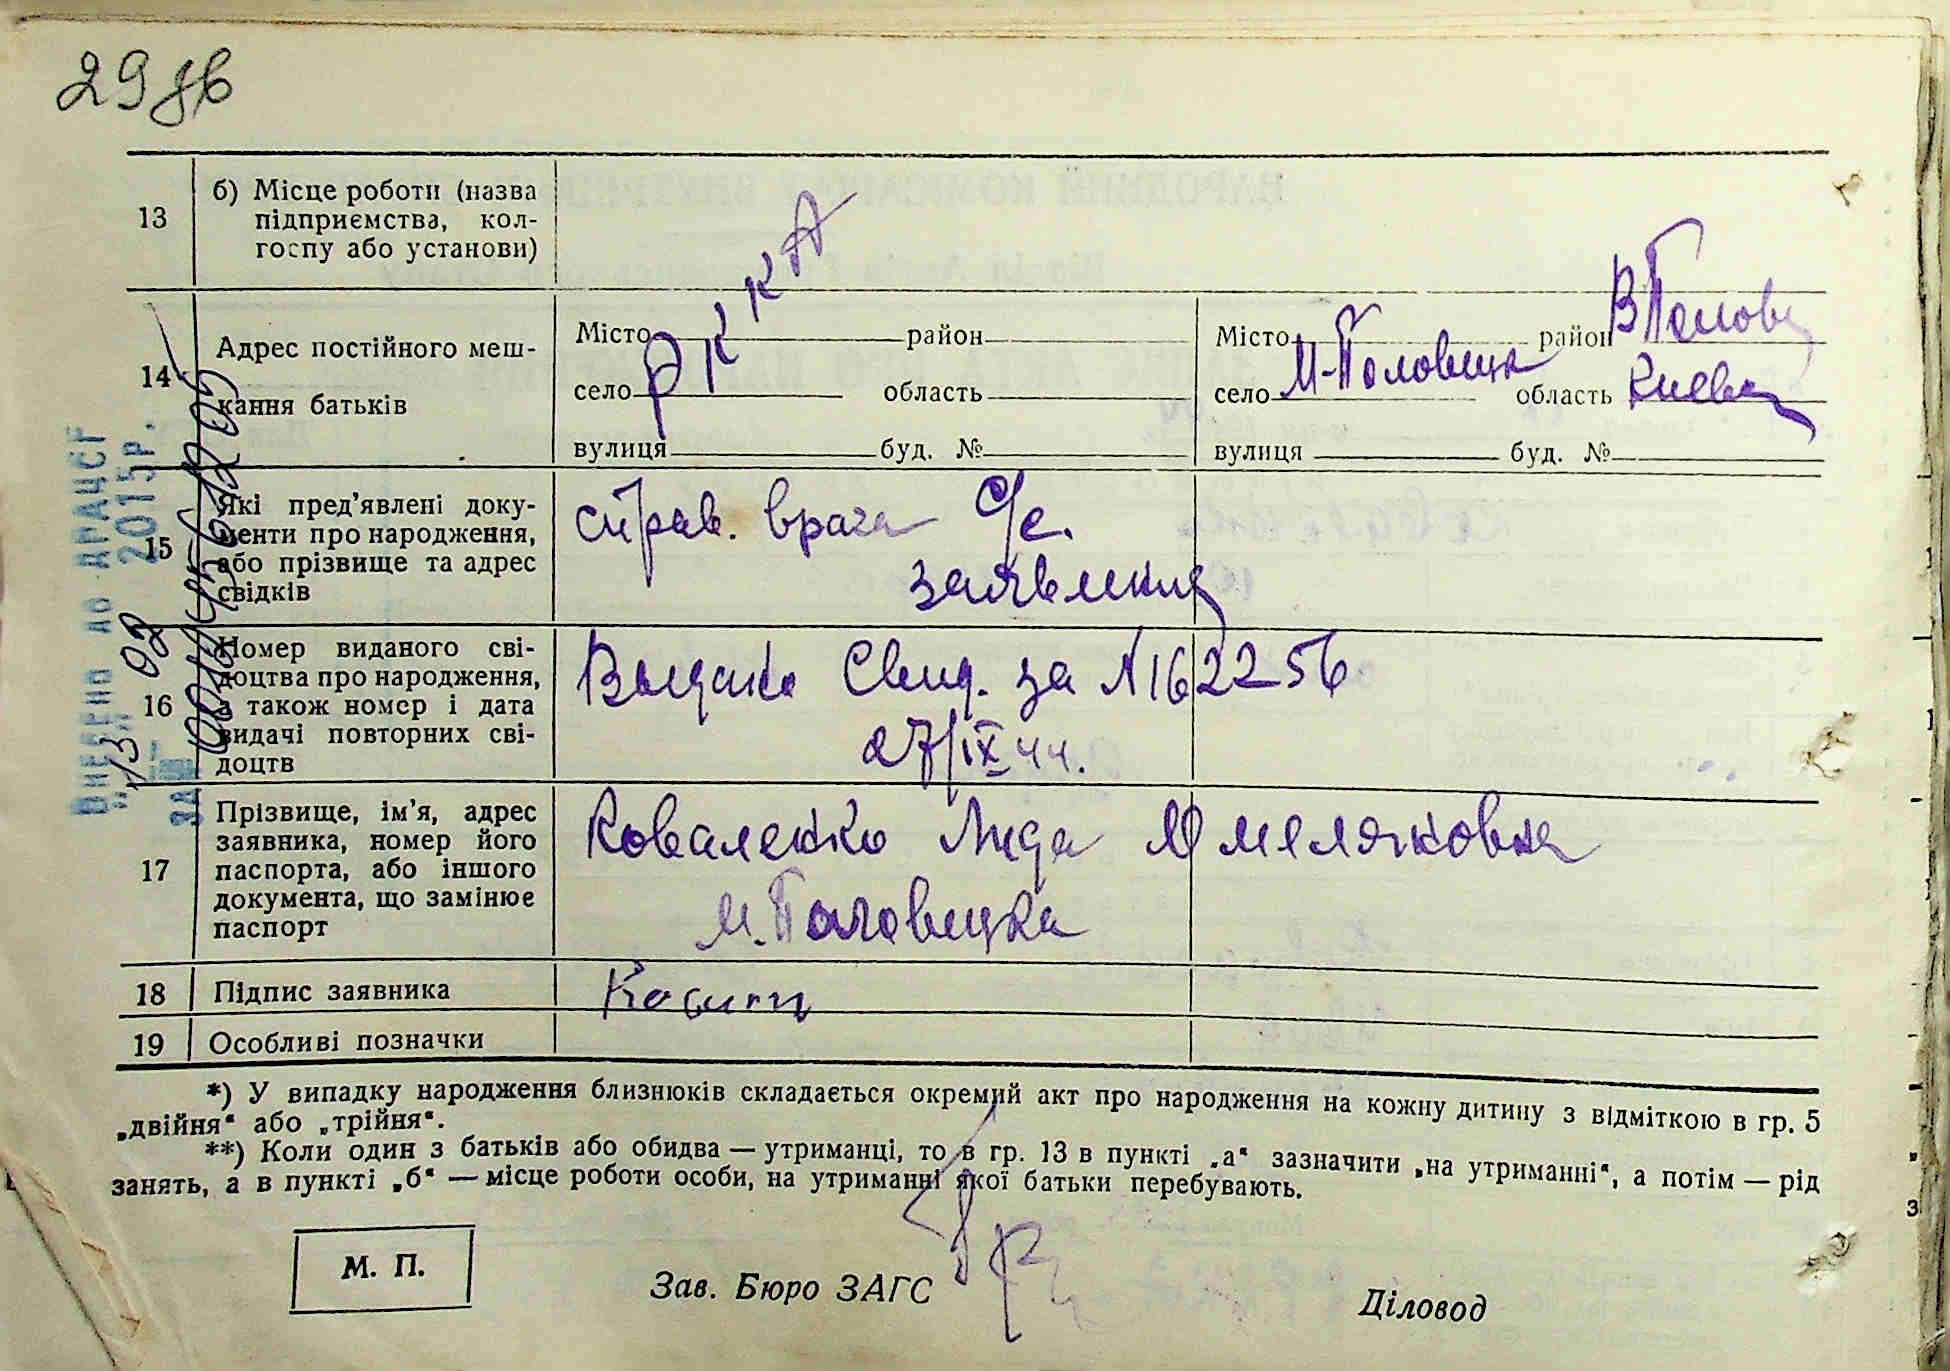 29 зв
13
б) Місце роботи (назва
підприємства, кол-
госпу або установи)
РККА
14
Адрес постійного меш-
кання батьків
Місто район
село область
вулиця буд. №
Місто район В Полов
село М-Половецк область Киевск
вулиця буд. №
15
Які пред’явлені доку-
менти про народження,
або прізвище та адрес
свідків
справ. врача С/с.
заявление
16
Номер виданого сві-
доцтва про народження,
а також номер і дата
видачі повторних сві-
доцтв
Выдано Свид. за №162256
27/IX 44.
17
Прізвище, ім’я, адрес
заявника, номер його
паспорта, або іншого
документа, що замінює
паспорт
Коваленко Лида Омеляновна
М. Половецка
18
Підпис заявника
19
Особливі позначки
*) У випадку народження близнюків складається окремий акт про народження на кожну дитину з відміткою в гр. 5
„двійня“ або „трійня“.
**) Коли один з батьків або обидва — утриманці, то в гр. 13 в пункті „а“ зазначити „на утриманні“, а потім — рід
занять, а в пункті „б“ — місце роботи особи, на утриманні якої батьки перебувають.
М. П.
Зав. Бюро ЗАГС
Діловод
Внесено до ДРАЦСГ
„13“ 02 2015р.
за